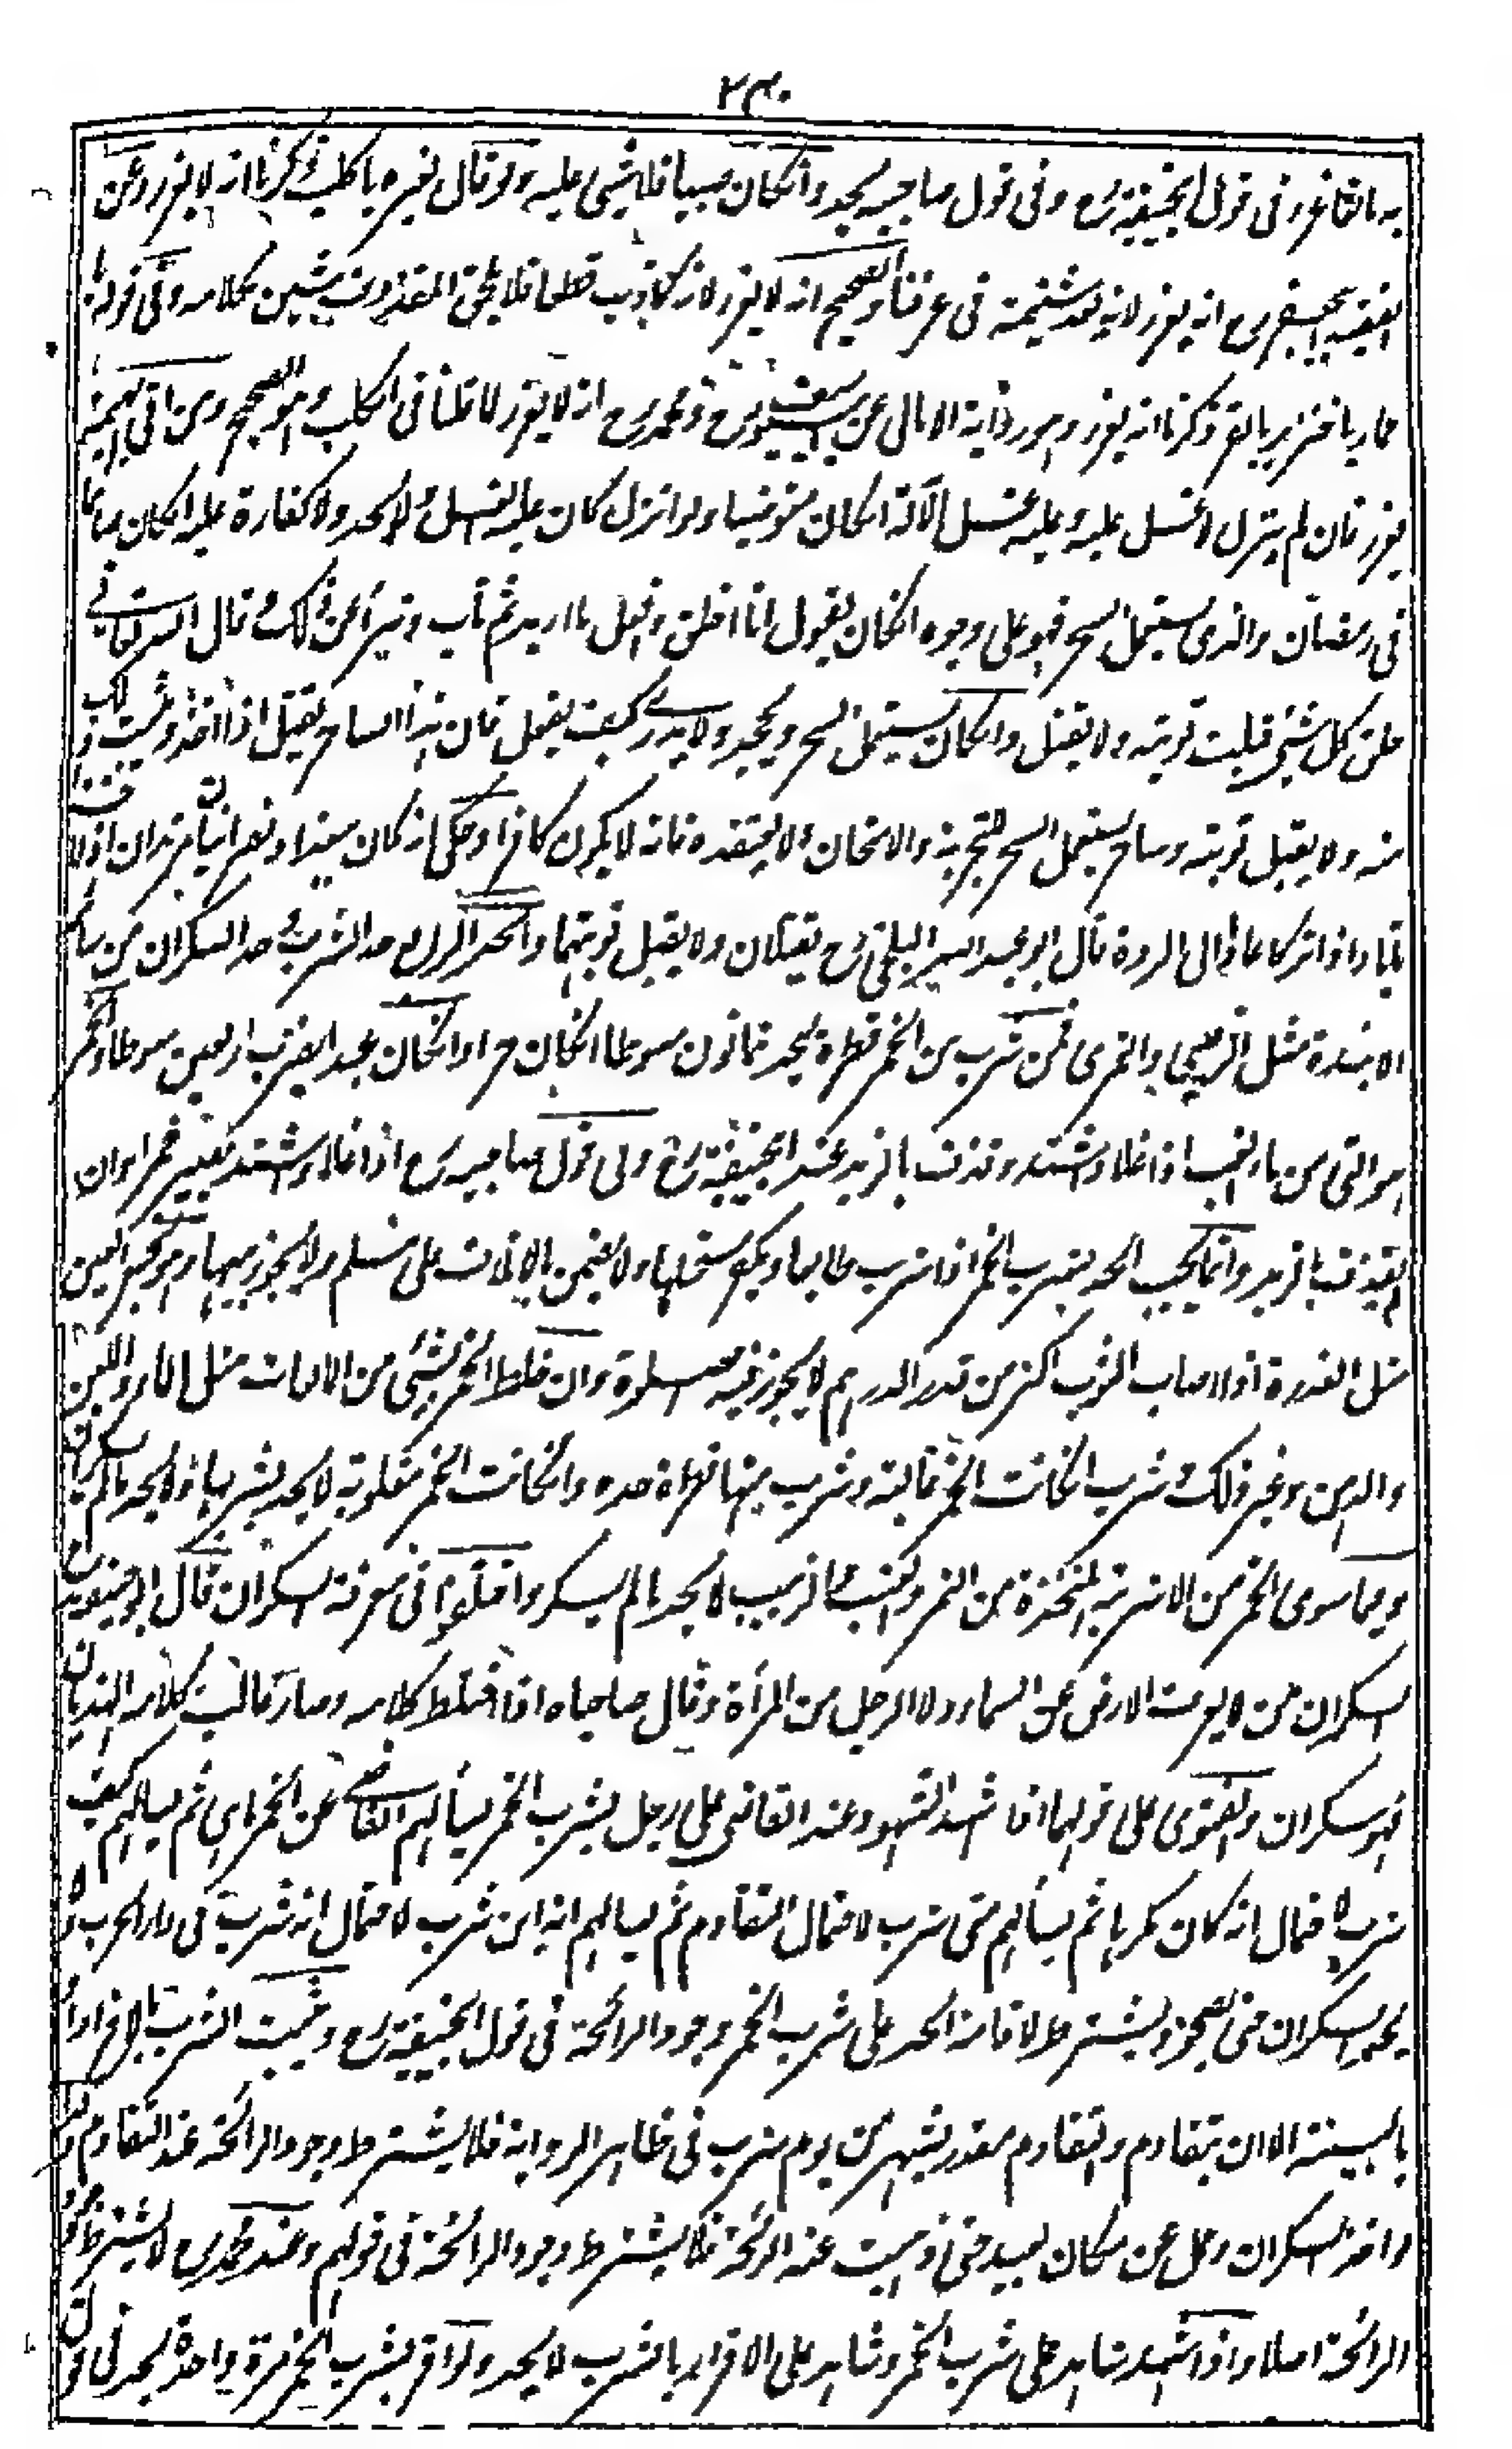 ٢٣٠
به ما تعازير وفى قول ابيحنيفة رح وفى قول صاحبيه يحد وانكان صبيا فلا شئ عليه ولو قال لغيره يا كلب ذكرنا انه لا يعزر وعن
الفقيه ابيجعفر رح انه يعزر لانه يعد شتيمة فى عرفنا والصحيح انه لا يعزر لانه كاذب قطعا فلا يلحق المقذوف شين بكلامه وفى قوله يا
حمار يا خنزير يا بقر ذكرنا انه يعزر وهو رواية الامالى عن ابي يوسف رح وعن محمد رح انه لا يعزر لما قلنا فى الكلب وهو الصحيح ومن اتى بهيمة
يعزر فان لم ينزل لا غسل عليه وعليه غسل الآلة انكان متوضيا ولو انزل كان عليه الغسل ولا يحد ولا كفارة عليه انكان صائما
فى رمضان والذى يستعمل السحر فهو على وجوه انكان يقول انا اخلق وافعل ما اريد ثم تاب وتبرأ عن ذلك وقال الله تعالى
خلق كل شئ قبلت توبته ولا يقتل وانكان يستعمل السحر ويجحد ولا يدرى كيف يفعل فان هذا الساحر يقتل اذا اخذ وثبت ذلك
منه ولا يقبل توبته وساحر يستعمل السحر للتجربة والامتحان ولا يعتقده فانه لا يكون كافرا وحكى انه كان ببغداد نصرانيان مرتدان اذا اخذا
تابا واذا تركا عادا الى الردة قال ابو عبد الله البلخى رح يقتلان ولا يقبل توبتهما والحد الرابع حد الشرب وحد السكران من سائر
الانبذة مثل الزبيبى والتمرى فمن شرب من الخمر قطرة يحد ثمانون سوطا انكان حرا وانكان عبدا يضرب اربعين سوطا والخمر
هو التى من ماء العنب اذا غلا واشتد وقذف بالزبد عند ابيحنيفة رح وفى قول صاحبيه رح اذا غلا واشتد يصير خمرا وان لم
يقذف بالزبد وانما يجب الحد بشرب الخمر اذا شرب طائعا ويكفر مستحلها ولا يضمن بالاتلاف على مسلم ولا يجوز بيعها وهو نجس العين
مثل العذرة اذا اصاب الثوب اكثر من قدر الدرهم لا يجوز فيه صلوة وان خلط الخمر بشئ من المائعات مثل الماء واللبن
والدهن وغير ذلك وشرب انكانت الخمر غالبة وشرب منها قطرة حد وانكانت الخمر مغلوبة لا يحد بشربها ولا يحد ما لم يسكر
وفيما سوى الخمر من الاشربة المتخذة من التمر والعنب والزبيب لا يحد ما لم يسكر واختلفوا فى معرفة السكران قال ابو حنيفة رح
السكران من لا يعرف الارض عن السماء ولا الرجل من المرأة وقال صاحباه اذا اختلط كلامه وصار غالب كلامه الهذيان
فهو سكران والفتوى على قولهما اذا شهد الشهود عند القاضى على رجل بشرب الخمر يسألهم القاضى عن الخمر ما هى ثم يسألهم كيف
شرب لاحتمال انه كان مكرها ثم يسألهم متى شرب لاحتمال التقادم ثم يسألهم انه اين شرب لاحتمال انه شرب فى دار الحرب ولا
يحد السكران حتى يصحو ويشترط لاقامة الحد على شرب الخمر وجود الرائحة فى قول ابيحنيفة رح وثبت الشرب بالاقرار او
بالبينة الا ان يتقادم والتقادم مقدر بشهر من يوم شرب فى ظاهر الرواية فلا يشترط وجود الرائحة عند التقادم
واخذ السكران وحمل عن مكان بعيد حتى ذهبت عنه الرائحة فلا يشترط وجود الرائحة فى قولهم وعند محمد رح لا يشترط وجود
الرائحة اصلا واذا شهد شاهد على شرب الخمر وشاهد على الاقرار بالشرب لا يحد ولو اقر بشرب الخمر مرة واحدة يحد فى قول